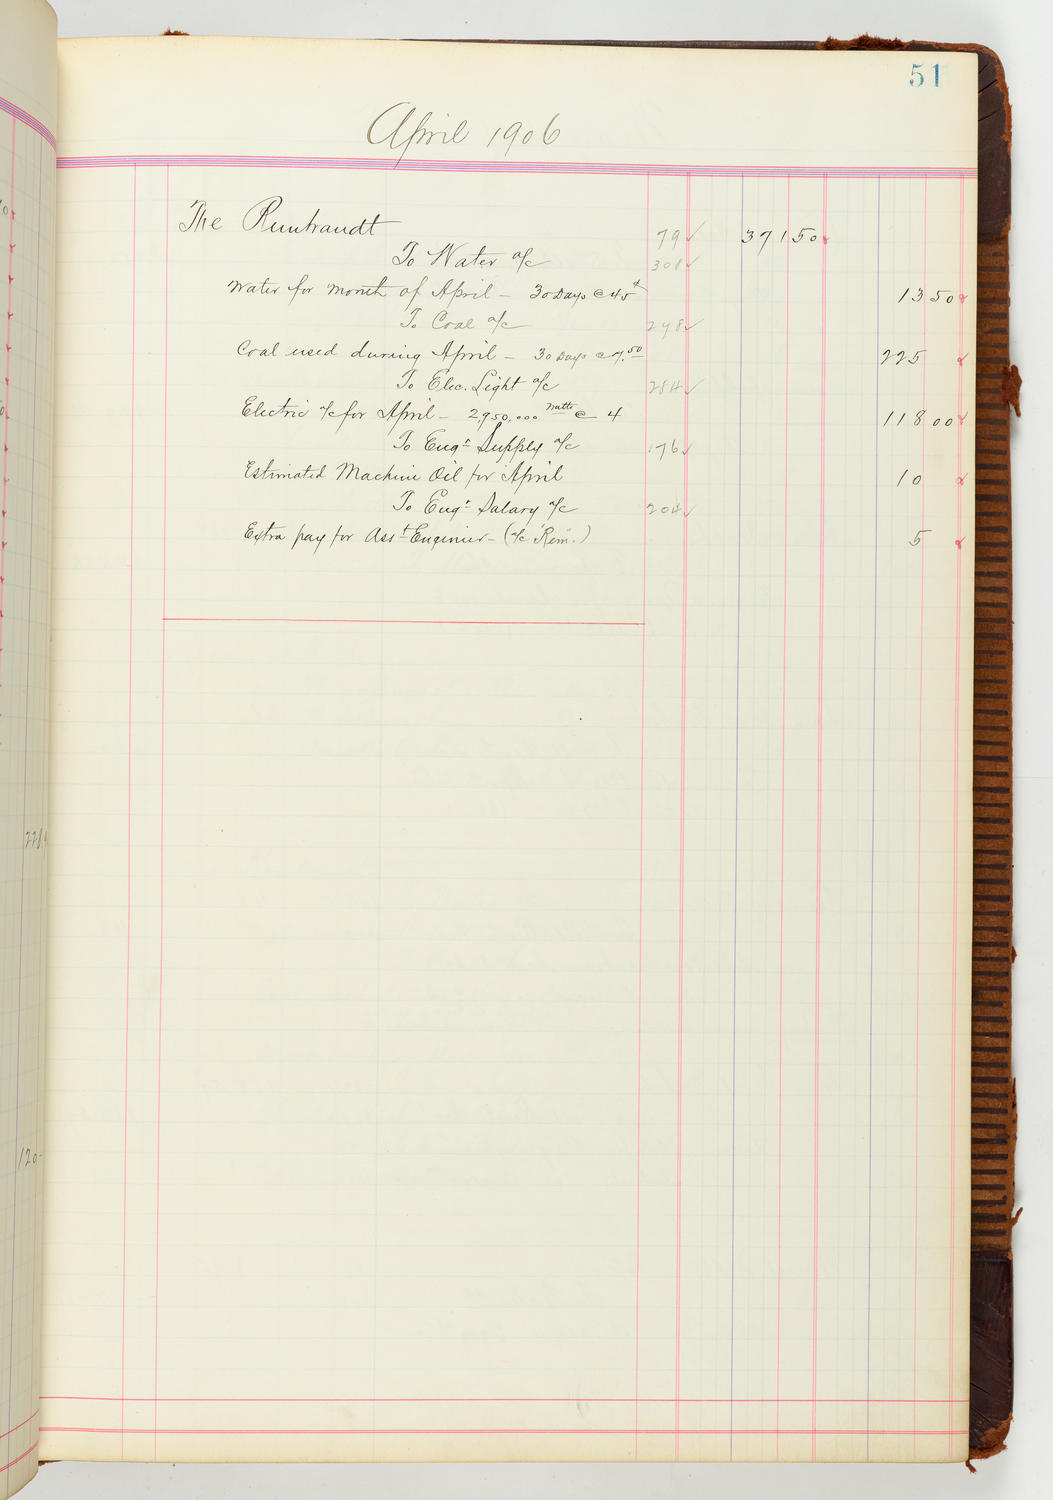 51
April 1906
The Rembrandt 79 ✓ 371 50
To Water a/c 308 ✓
Water for month of April – 30 Days @ 45¢ 13 50
To Coal a/c 298 ✓
Coal used during April – 30 Days @ 7.50 225
To Elec. Light a/c 284 ✓
Electric a/c for April – 2,950,000 Watts @ 4 118 00
To Engr Supply a/c 176 ✓
Estimated Machine Oil for April 10
To Engr Salary a/c 204 ✓
Extra pay for Asst Engineer – (a/c "Rem".) 5
120-